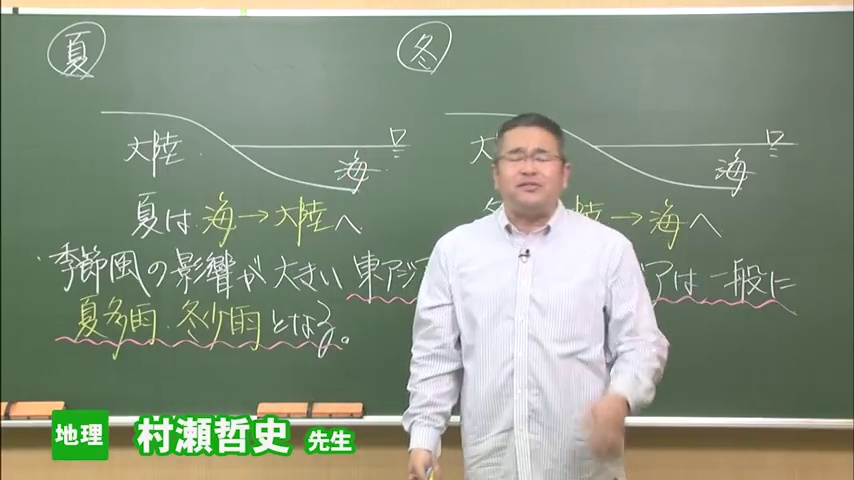 夏
冬
大陸
海
大
海
夏は 海→大陸へ
陸→海へ
・季節風の影響が大きい東アジア アは一般に
夏多雨・冬少雨となる。
地理 村瀬哲史 先生